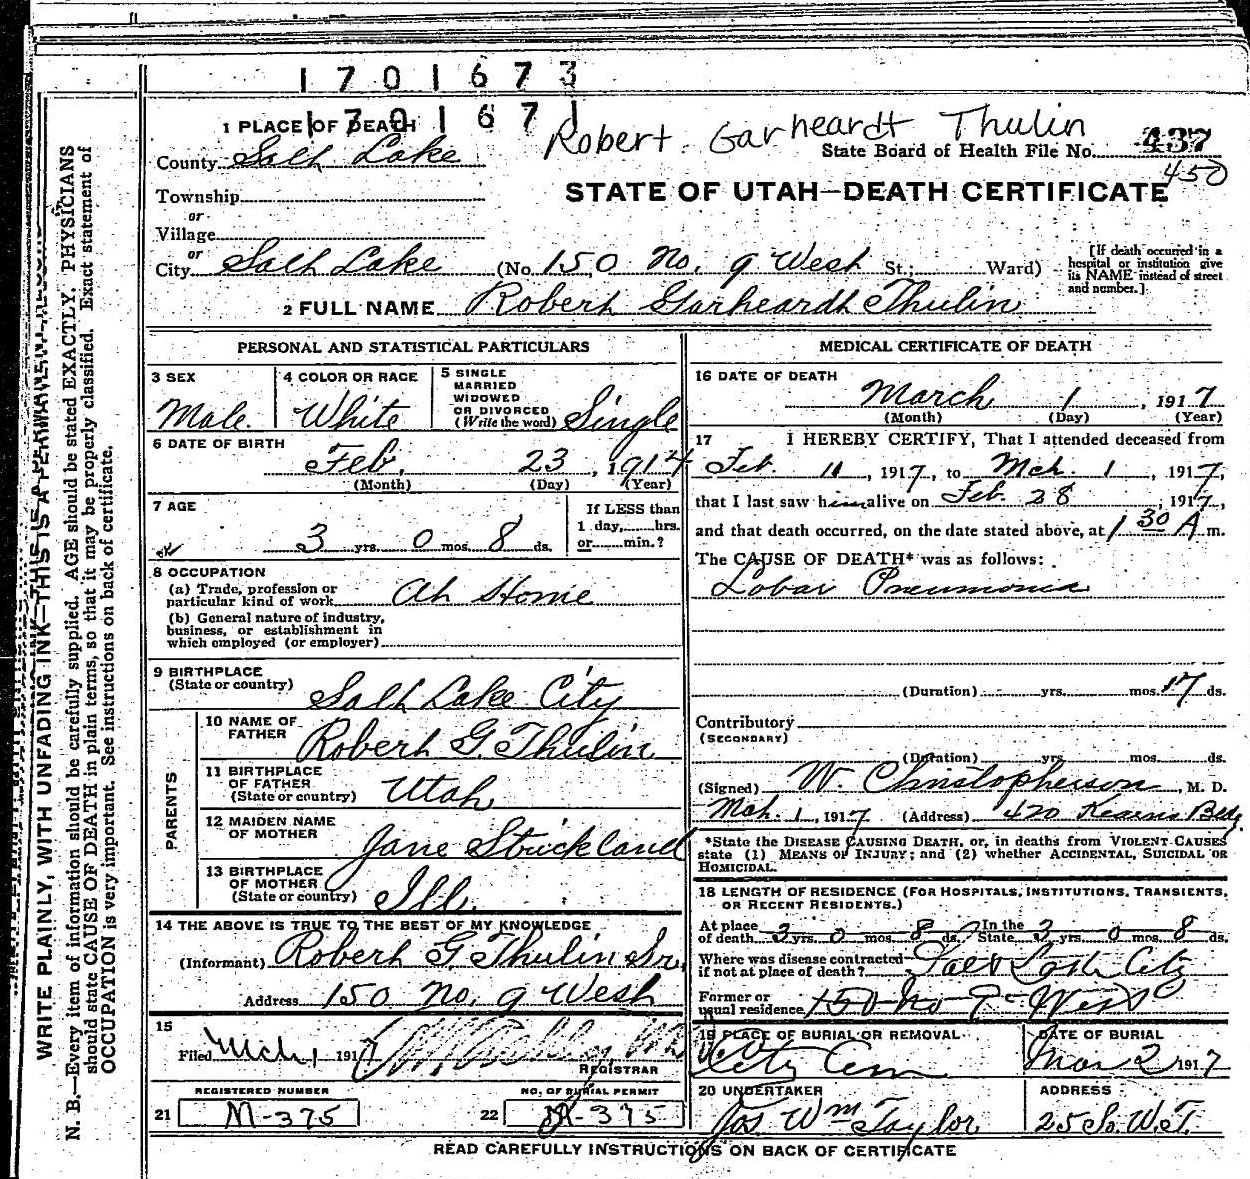 1701673
1701671
Robert Garheardt Thulin
1 PLACE OF DEATH
County Salt Lake
State Board of Health File No. 437
450
Township
or
Village
or
City Salt Lake
STATE OF UTAH—DEATH CERTIFICATE
(No. 150 No. 9 West St.; Ward)
[If death occurred in a
hospital or institution give
its NAME instead of street
and number.]
2 FULL NAME Robert Garheardt Thulin
PERSONAL AND STATISTICAL PARTICULARS
3 SEX
Male
4 COLOR OR RACE
White
5 SINGLE
MARRIED
WIDOWED
OR DIVORCED
(Write the word) Single
6 DATE OF BIRTH
Feb. 23, 1914
(Month) (Day) (Year)
7 AGE
3 yrs. 0 mos. 8 ds.
If LESS than
1 day, hrs.
or min.?
8 OCCUPATION
(a) Trade, profession or
particular kind of work At Home
(b) General nature of industry,
business, or establishment in
which employed (or employer)
9 BIRTHPLACE
(State or country) Salt Lake City
PARENTS
10 NAME OF
FATHER Robert G. Thulin
11 BIRTHPLACE
OF FATHER
(State or country) Utah
12 MAIDEN NAME
OF MOTHER Jane Strickland
13 BIRTHPLACE
OF MOTHER
(State or country) Ill.
14 THE ABOVE IS TRUE TO THE BEST OF MY KNOWLEDGE
(Informant) Robert G. Thulin Sr.
Address 150 No. 9 West
15
Filed Mch 1, 1917
REGISTRAR
REGISTERED NUMBER
21 M-375
NO. OF BURIAL PERMIT
22 M-375
MEDICAL CERTIFICATE OF DEATH
16 DATE OF DEATH
March 1, 1917
(Month) (Day) (Year)
17 I HEREBY CERTIFY, That I attended deceased from
Feb. 11, 1917, to Mch. 1, 1917,
that I last saw him alive on Feb. 28, 1917,
and that death occurred, on the date stated above, at 1 30 A m.
The CAUSE OF DEATH* was as follows:
Lobar Pneumonia
(Duration) yrs. mos. 17 ds.
Contributory
(SECONDARY)
(Duration) yrs. mos. ds.
(Signed) W. Christopherson, M. D.
Mch. 1, 1917 (Address) 420 Kearns Bldg.
*State the DISEASE CAUSING DEATH, or, in deaths from VIOLENT CAUSES
state (1) MEANS OF INJURY; and (2) whether ACCIDENTAL, SUICIDAL OR
HOMICIDAL.
18 LENGTH OF RESIDENCE (FOR HOSPITALS, INSTITUTIONS, TRANSIENTS,
OR RECENT RESIDENTS.)
At place
of death 3 yrs. 0 mos. 8 ds. In the
State 3 yrs. 0 mos. 8 ds.
Where was disease contracted
if not at place of death? Salt Lake City
Former or
usual residence 150 No 9 West
19 PLACE OF BURIAL OR REMOVAL
City Cem
DATE OF BURIAL
Mar 2 1917
20 UNDERTAKER
Jos Wm Taylor
ADDRESS
25 So. W. T.
READ CAREFULLY INSTRUCTIONS ON BACK OF CERTIFICATE
WRITE PLAINLY, WITH UNFADING INK—THIS IS A PERMANENT RECORD
N. B.—Every item of information should be carefully supplied. AGE should be stated EXACTLY. PHYSICIANS
should state CAUSE OF DEATH in plain terms, so that it may be properly classified. Exact statement of
OCCUPATION is very important. See instructions on back of certificate.